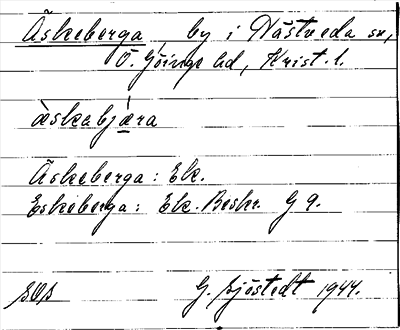 Äskeberga, by i Nästveda sn,
Ö. Göinge hd, Krist. l.
àskabjæ̀ra
Äskeberga: Ek.
Eskeberga: Ek. Beskr. G 9.
SOS G. Sjöstedt 1944.